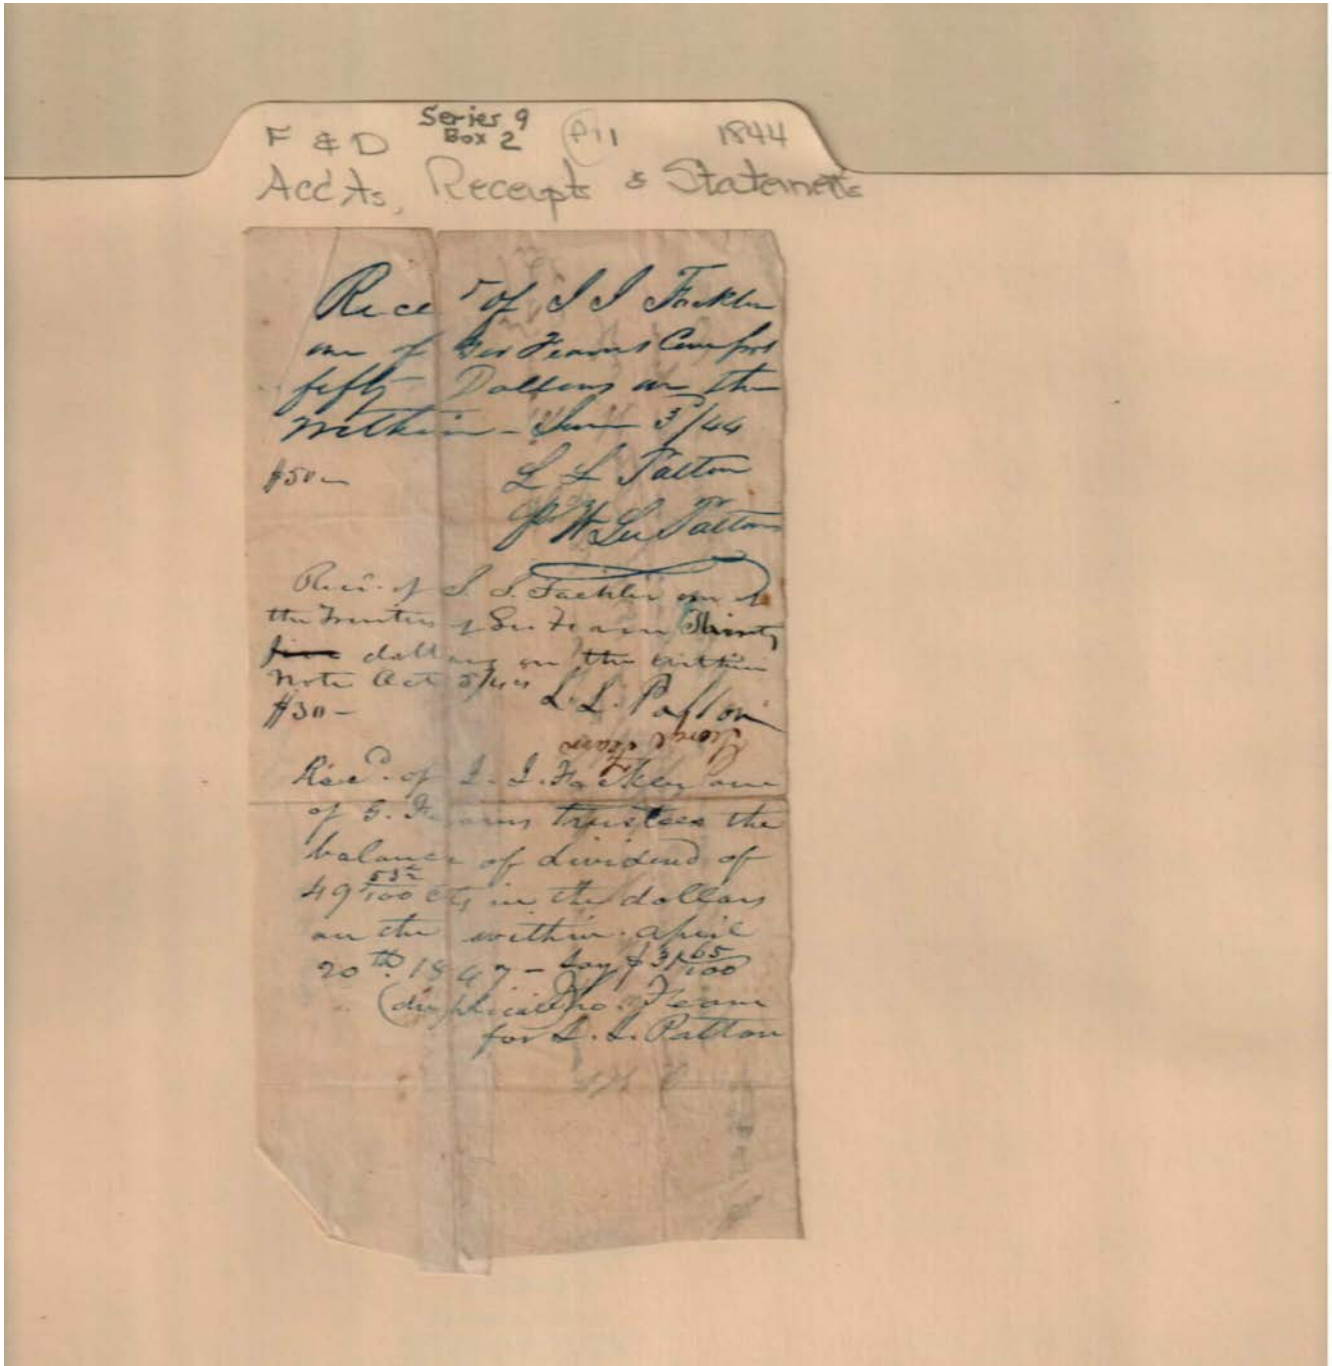 F & D Series 9 Box 2 P11 1844
Acc'ts, Receipts & Statements
Rece of J J Fackler
one of Geo Fearns
fifty Dollars on the
within - June 3/44
$50 - L L Patton
Pr W Lee Patton
Recd. of J. J. Fackler one of
the Trustees of Geo Fearn Thirty
dollars on the within
note Oct 5/44 L. L. Patton
$30 -
George Fearn
Recd. of J. J. Fackler one
of G. Fearns trustees the
balance of dividend of
49 53½/100 cts in the dollars
on the within. April
20th. 1847 - Say $31 65/100
(duplicate) Tho. Fearn
for L. L. Patton